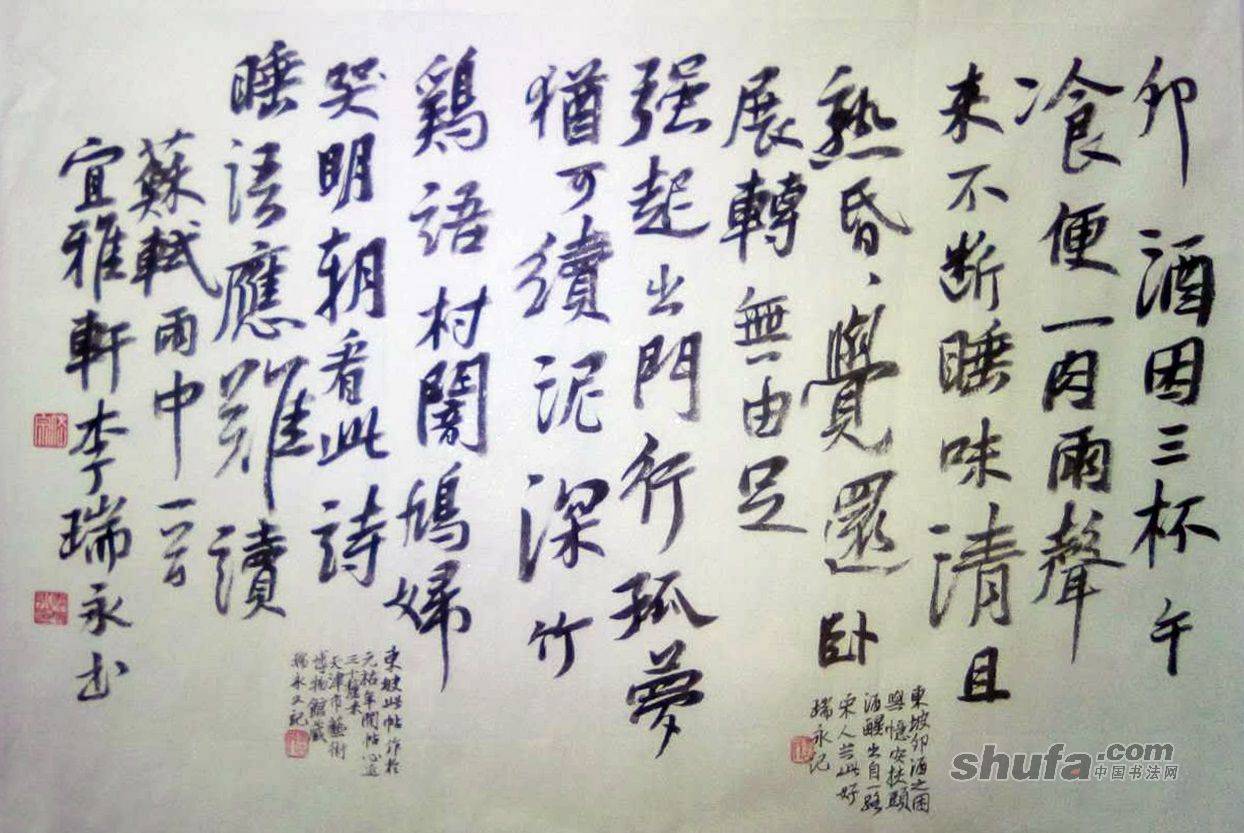 卯酒困三杯午
飡便一肉雨聲
来不断睡味清且
熟昏、覺還卧
展轉無由足
强起出門行孤夢
猶可續泥深竹
鷄語村闇鳩婦
哭明朝看此詩
睡語應難讀
蘇軾雨中一首
宜雅軒李瑞永书
東坡卯酒之困
與憶安扶頭
酒醒出自一路
宋人 此好
瑞永记
東坡此帖作於
元祐年閒帖心追
三十
天津市藝術
博物館藏
瑞永又記
shufa.com
中国书法网